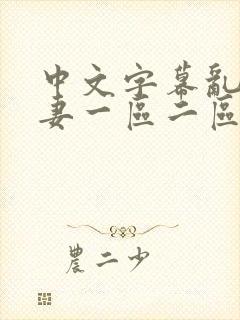 中文字幕亂
妻一區二區
農二少